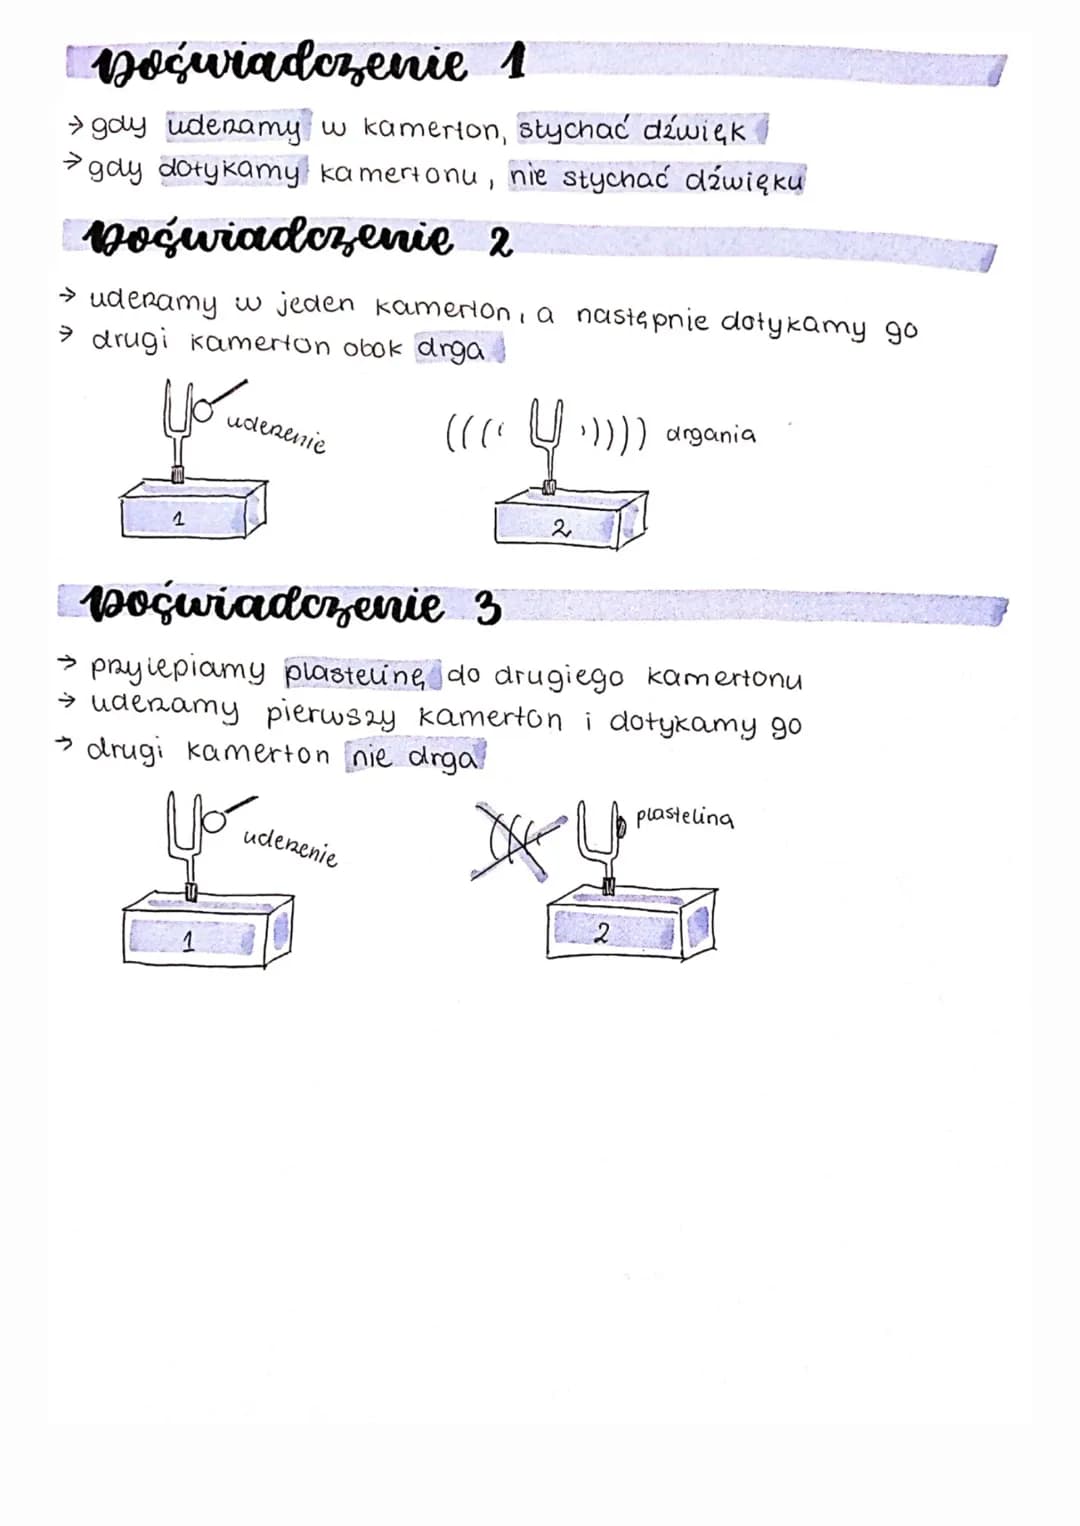 Doświadczenie 1
→ gdy uderzamy w kamerton, słychać dźwięk
→ gdy dotykamy kamertonu, nie słychać dźwięku
Doświadczenie 2
→ uderzamy w jeden kamerton, a następnie dotykamy go
→ drugi kamerton obok drga
uderzenie
drgania
1
2
Doświadczenie 3
→ przylepiamy plastelinę do drugiego kamertonu
→ uderzamy pierwszy kamerton i dotykamy go
→ drugi kamerton nie drga
uderzenie
plastelina
1
2